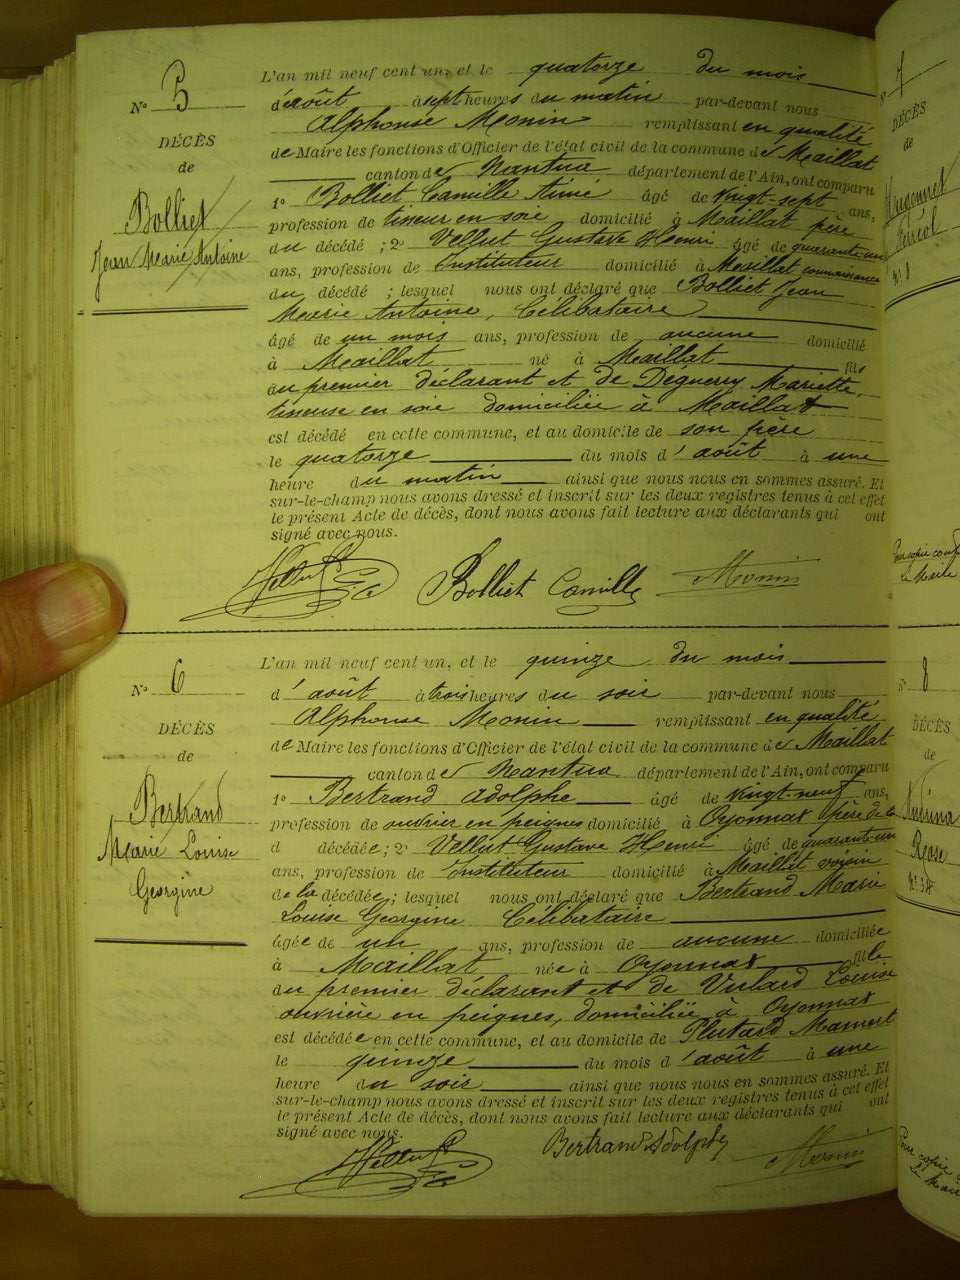 N° 5
DÉCÈS
de
Bolliet
Jean Marie Antoine
L'an mil neuf cent un, et le quatorze du mois
d'août à sept heures du matin par-devant nous
Alphonse Monin remplissant en qualité
de Maire les fonctions d'Officier de l'état civil de la commune de Maillat
canton de Nantua département de l'Ain, ont comparu
1° Bolliet Camille Aimé âgé de vingt-sept ans,
profession de tisseur en soie domicilié à Maillat père
du décédé ; 2° Vellut Gustave Henri âgé de quarante un
ans, profession de Instituteur domicilié à Maillat connaissance
du décédé ; lesquel nous ont déclaré que Bolliet Jean
Marie Antoine, Célibataire
âgé de un mois ans, profession de aucune domicilié
à Maillat né à Maillat fils
du premier déclarant et de Mariette,
tisseuse en soie domiciliée à Maillat
est décédé en cette commune, et au domicile de son père
le quatorze du mois d'août à une
heure du matin ainsi que nous nous en sommes assuré. Et
sur-le-champ nous avons dressé et inscrit sur les deux registres tenus à cet effet
le présent Acte de décès, dont nous avons fait lecture aux déclarants qui ont
signé avec nous.
Vellut G Bolliet Camille Monin
N° 6
DÉCÈS
de
Bertrand
Marie Louise
Georgine
L'an mil neuf cent un, et le quinze du mois
d'août à trois heures du soir par-devant nous
Alphonse Monin remplissant en qualité
de Maire les fonctions d'Officier de l'état civil de la commune de Maillat
canton de Nantua département de l'Ain, ont comparu
1° Bertrand Adolphe âgé de vingt-neuf ans,
profession de ouvrier en peignes domicilié à Oyonnax père de la
d décédée ; 2° Vellut Gustave Henri âgé de quarante-un
ans, profession de Instituteur domicilié à Maillat voisin
de la décédée ; lesquel nous ont déclaré que Bertrand Marie
Louise Georgine Célibataire
âgée de un ans, profession de aucune domiciliée
à Maillat née à Oyonnax fille
du premier déclarant et de Vulard Louise
ouvrière en peignes, domiciliée à Oyonnax
est décédée en cette commune, et au domicile de Plutard Mamert
le quinze du mois d'août à une
heure du soir ainsi que nous nous en sommes assuré. Et
sur-le-champ nous avons dressé et inscrit sur les deux registres tenus à cet effet
le présent Acte de décès, dont nous avons fait lecture aux déclarants qui ont
signé avec nous.
Vellut G Bertrand Adolphe Monin
N° 7
DÉCÈS
de
Hugonnet
N° 8
DÉCÈS
de
Rose